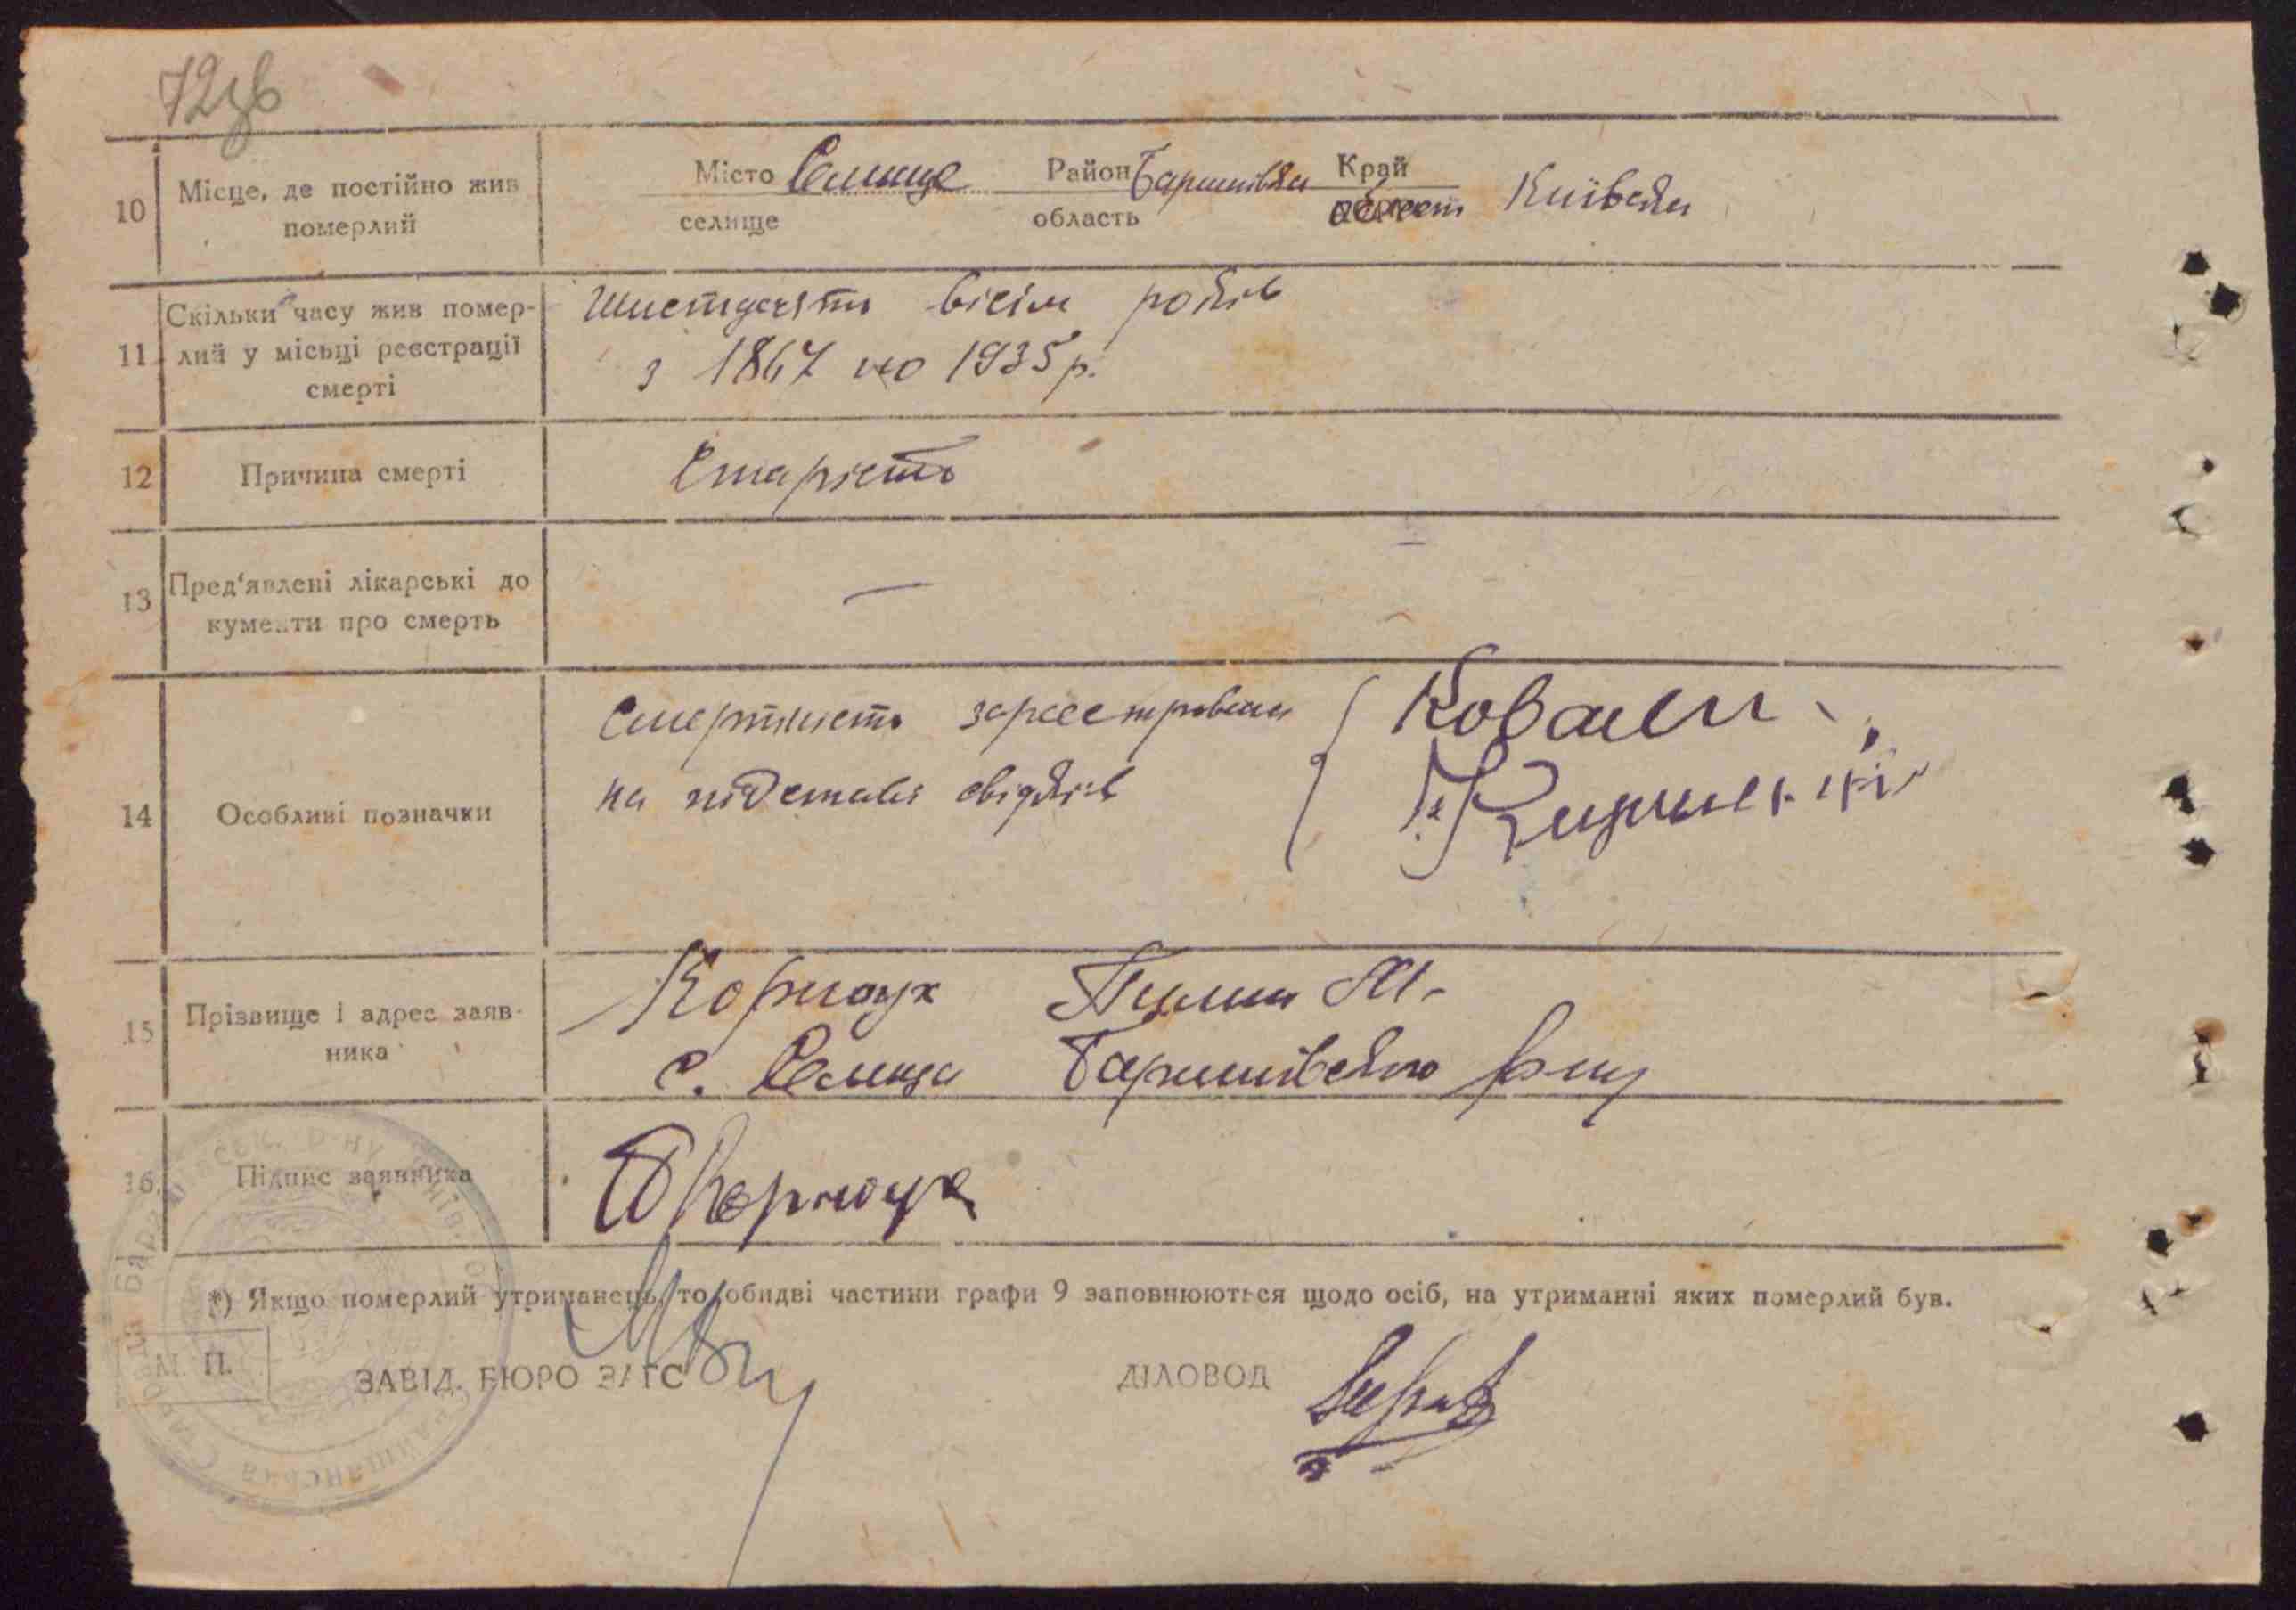 72зв
10 Місце, де постійно жив померлий
Місто Селище Район Баришівка Край Київська
селище область област
11 Скільки часу жив помер-
лий у місьці реєстрації
смерті
Шистдесять вісім років
з 1867 по 1935 р.
12 Причина смерті
Старість
13 Пред'явлені лікарські до
кументи про смерть
—
14 Особливі позначки
Смертність зареєстрована
на підставі свідків
15 Прізвище і адрес заяв-
ника
Корнюх М.
с. Селища Баришівського р-ну
16 Підпис заявника
Корнюх
*) Якщо померлий утриманець, то обидві частини графи 9 заповнюються щодо осіб, на утриманні яких померлий був.
М. П.
ЗАВІД. БЮРО ЗАГС
ДІЛОВОД